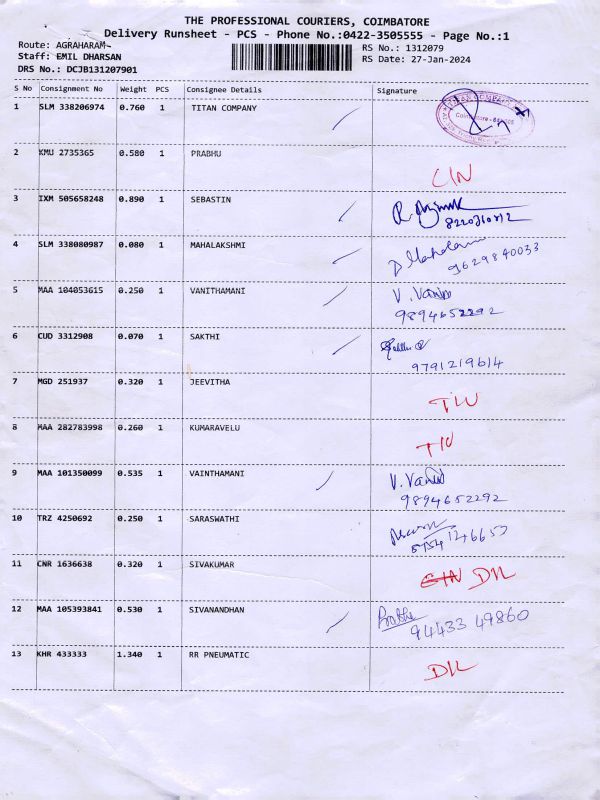 THE PROFESSIONAL COURIERS, COIMBATORE
Delivery Runsheet - PCS - Phone No.:0422-3505555 - Page No.:1
Route: AGRAHARAM RS No.: 1312079
Staff: EMIL DHARSAN RS Date: 27-Jan-2024
DRS No.: DCJB131207901
S No Consignment No Weight PCS Consignee Details Signature
1 SLM 338206974 0.760 1 TITAN COMPANY
TITAN COMPANY
Coimbatore
2 KMU 2735365 0.580 1 PRABHU
CIN
3 IXM 505658248 0.890 1 SEBASTIN
8220310812
4 SLM 338080987 0.080 1 MAHALAKSHMI
9629840033
5 MAA 104053615 0.250 1 VANITHAMANI
V. Vani
9894652292
6 CUD 3312908 0.070 1 SAKTHI
9791219614
7 MGD 251937 0.320 1 JEEVITHA
8 MAA 282783998 0.260 1 KUMARAVELU
9 MAA 101350099 0.535 1 VAINTHAMANI
V. Vani
9894652292
10 TRZ 4250692 0.250 1 SARASWATHI
11 CNR 1636638 0.320 1 SIVAKUMAR
CIN DIL
12 MAA 105393841 0.530 1 SIVANANDHAN
94433 49860
13 KHR 433333 1.340 1 RR PNEUMATIC
DIL